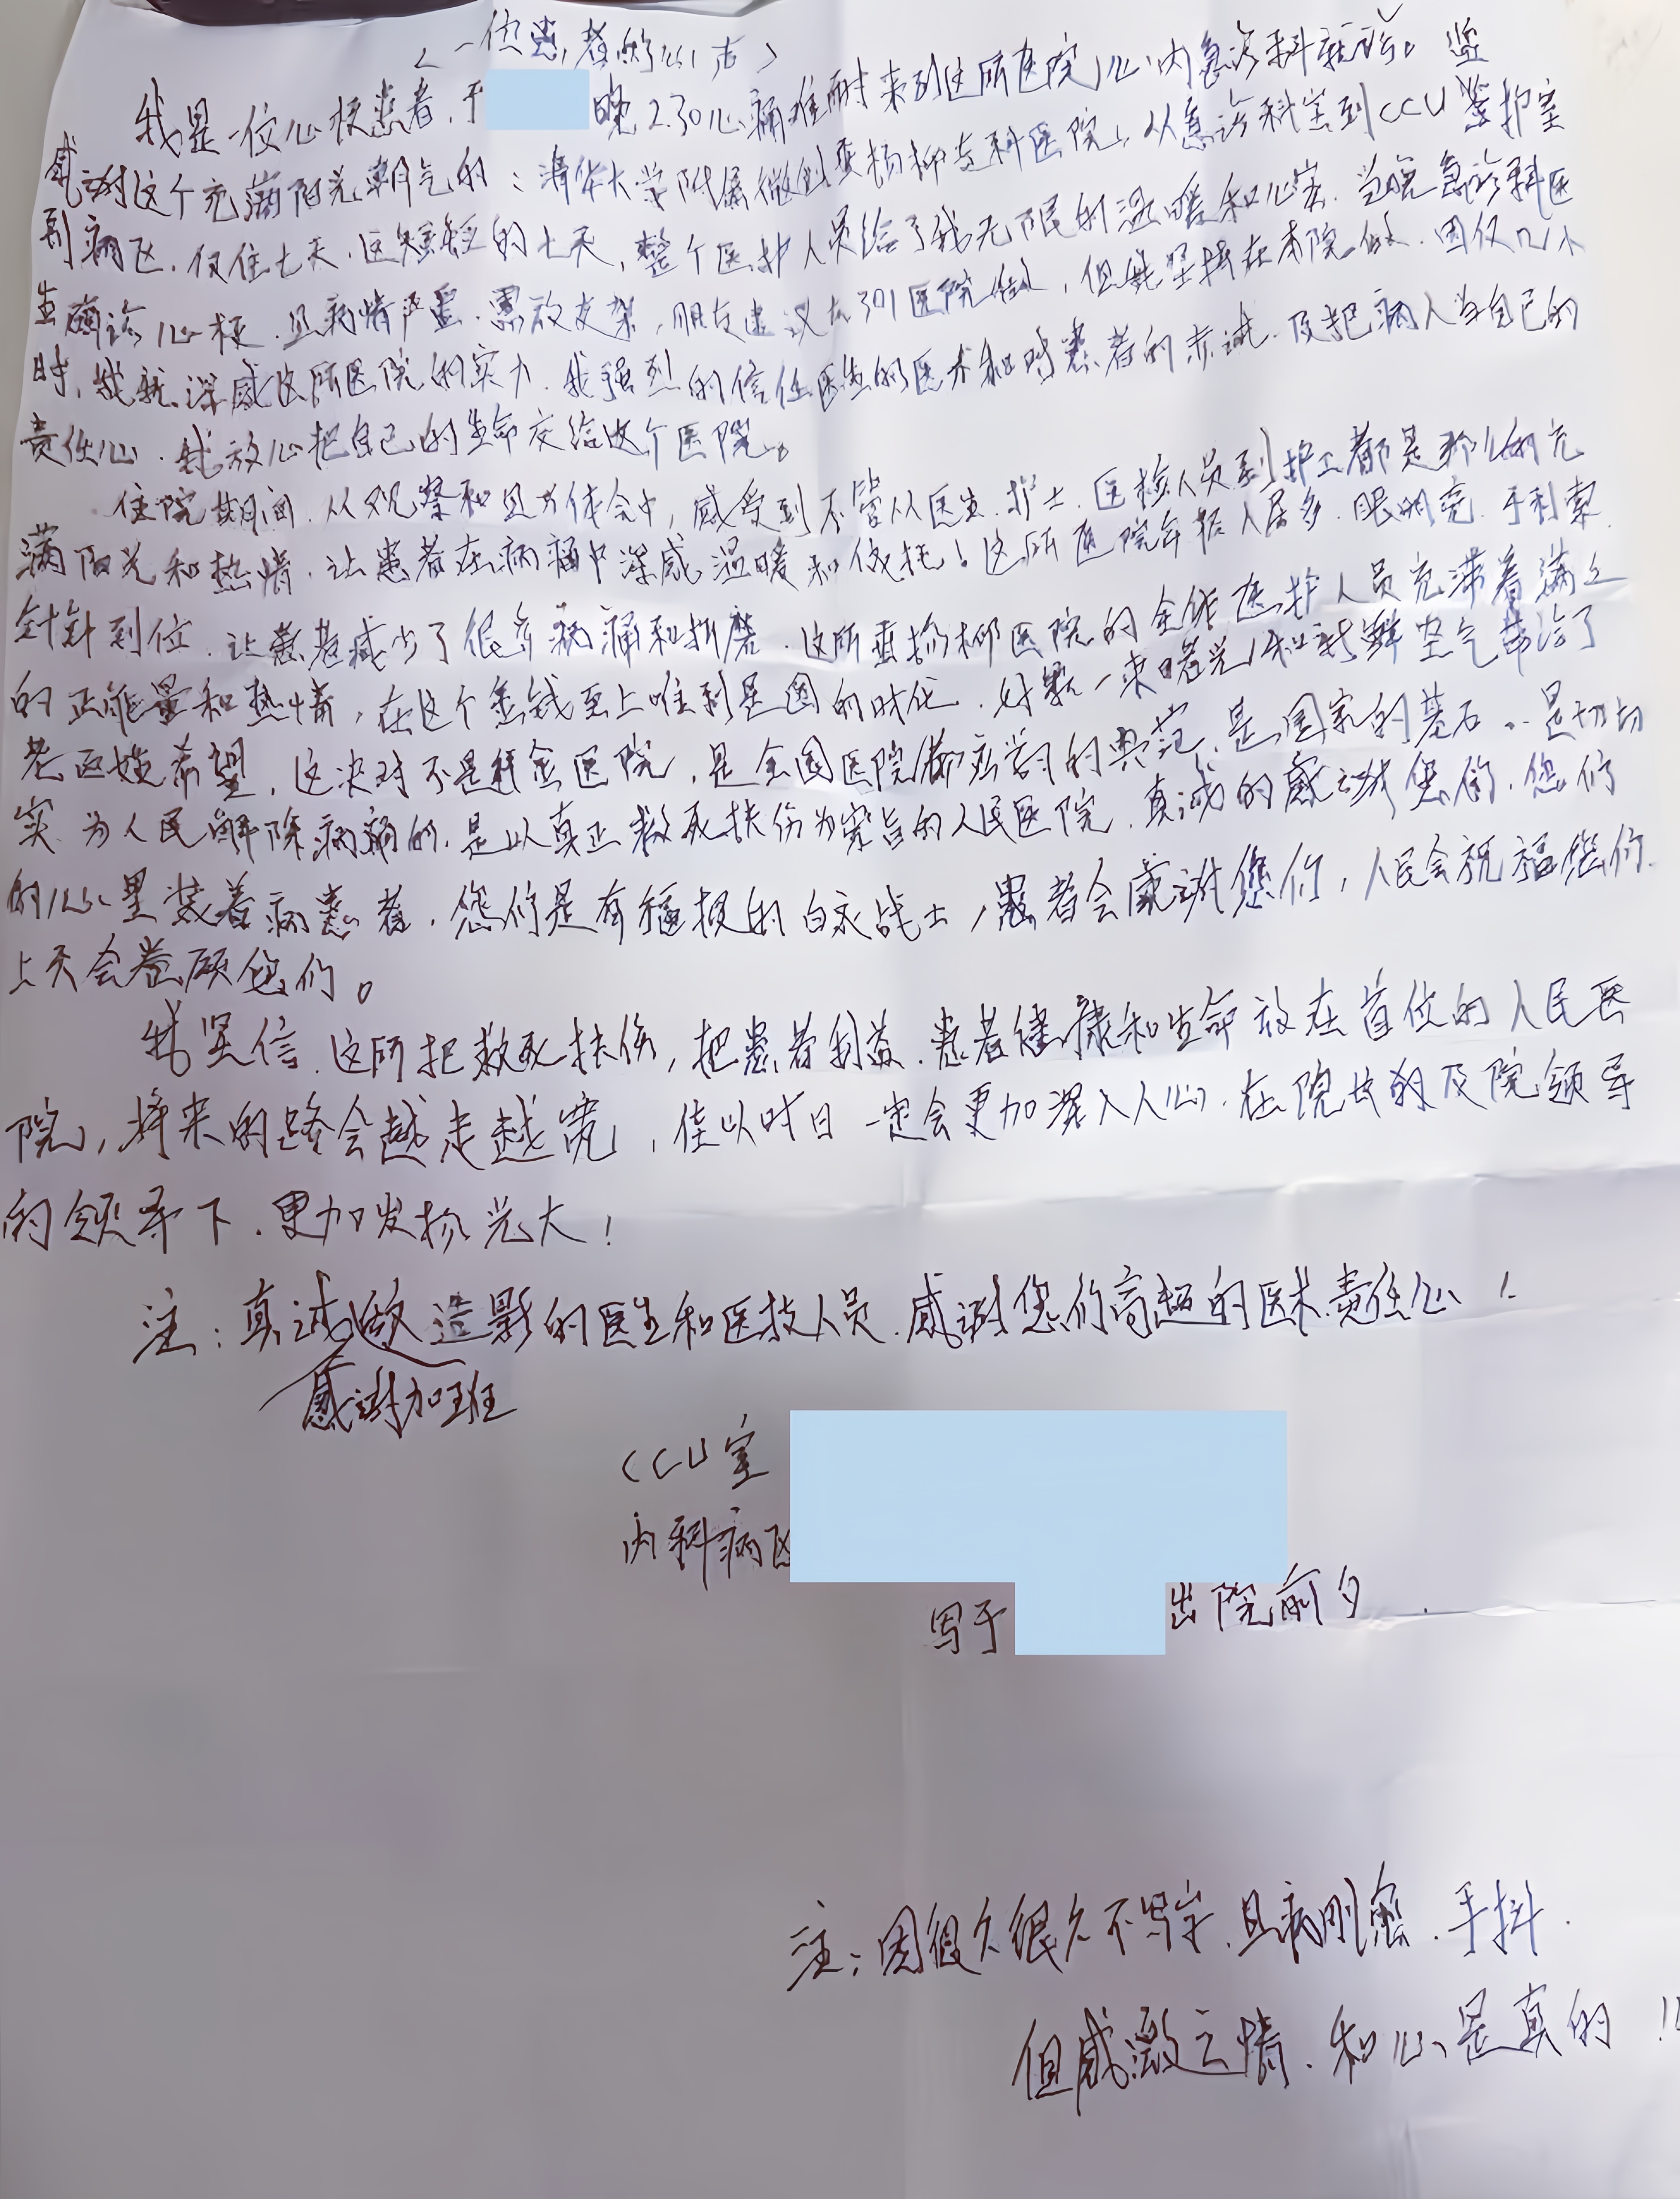 〈一位患者的心声〉
我是一位心梗患者，于 晚2.30心痛难耐来到这所医院心内急诊科就诊。
感谢这个充满阳光朝气的：清华大学附属 垂杨柳 医院，从急诊科室到CCU监护室
到病区，仅住七天，这短短的七天，整个医护人员给了我无限的温暖和心安，当晚急诊科医
生确诊心梗，且病情严重，需放支架，朋友建议去301医院做，但我坚持在本院做，因仅几小
时，我就深感这所医院的实力，我强烈的信任医生的医术和对患者的赤诚，及把病人当自己的
责任心，我放心把自己的生命交给这个医院。
住院期间，从观察和 体会中，感受到不管从医生、护士、医检人员到护工都是那么的充
满阳光和热情，让患者在病痛中深感温暖和依托！这所医院年轻人居多，眼明亮，手利索，
针针到位，让患者减少了很多病痛和折磨，这所垂杨柳医院的全体医护人员充满着满满
的正能量和热情，在这个金钱至上唯利是图的时代，好象一束曙光和新鲜空气带给了
老百姓希望，这决对不是拜金医院，是全国医院都应学习的典范，是国家的基石，是切切
实实为人民解除病痛的，是以真正救死扶伤为宗旨的人民医院，真诚的感谢您们，您们
的心里装着病患者，您们是有福报的白衣战士，患者会感谢您们，人民会祝福您们，
上天会眷顾您们。
我坚信，这所把救死扶伤，把患者利益，患者健康和生命放在首位的人民医
院，将来的路会越走越宽，佳以时日一定会更加深入人心，在院长的及院领导
的领导下，更加发扬光大！
注：真诚做造影的医生和医技人员，感谢您们高超的医术责任心！
感谢加班
CCU室
内科病区
写于 出院前夕
注：因很久很久不写字，且病刚愈，手抖，
但感激之情，和心是真的！！